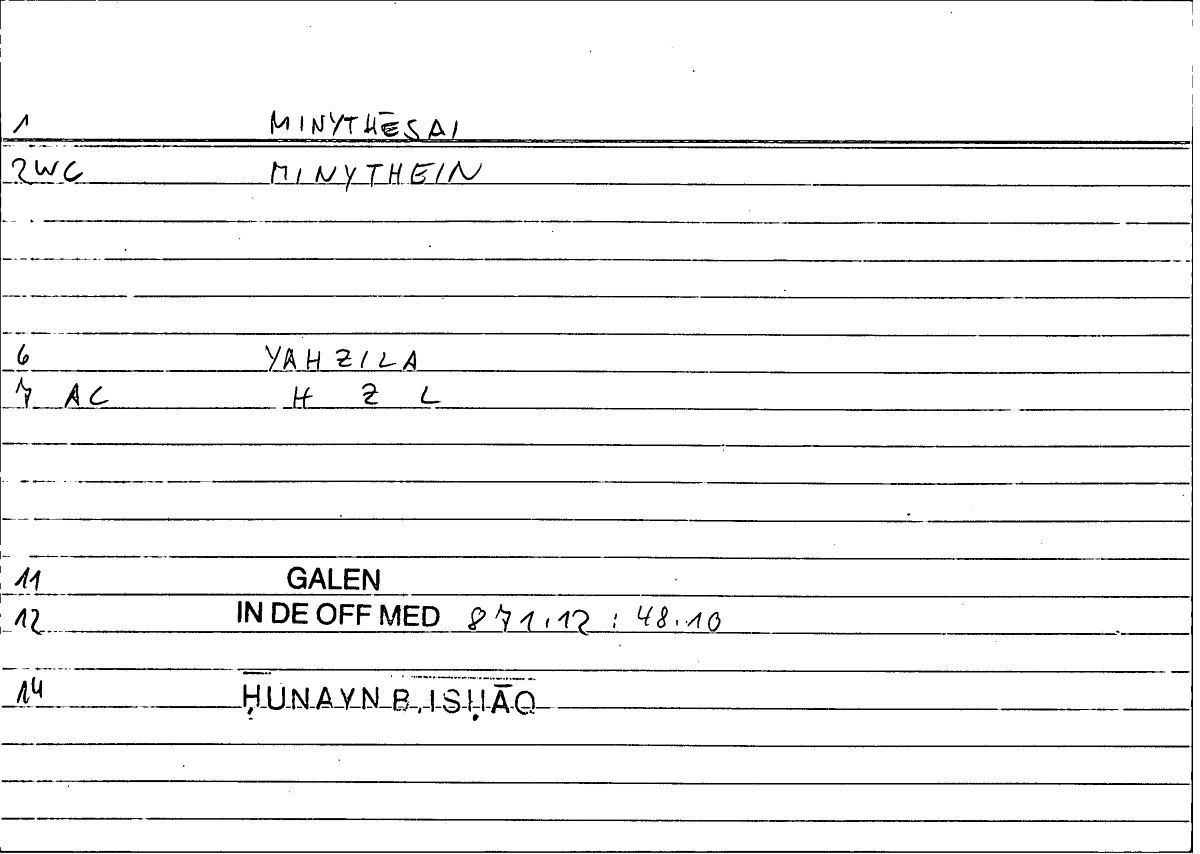 1 MINYTHĒSAI
2WC MINYTHEIN
6 YAHZILA
7 AC H Z L
11 GALEN
12 IN DE OFF MED 871.12 : 48.10
14 ḤUNAYN B. ISḤĀQ